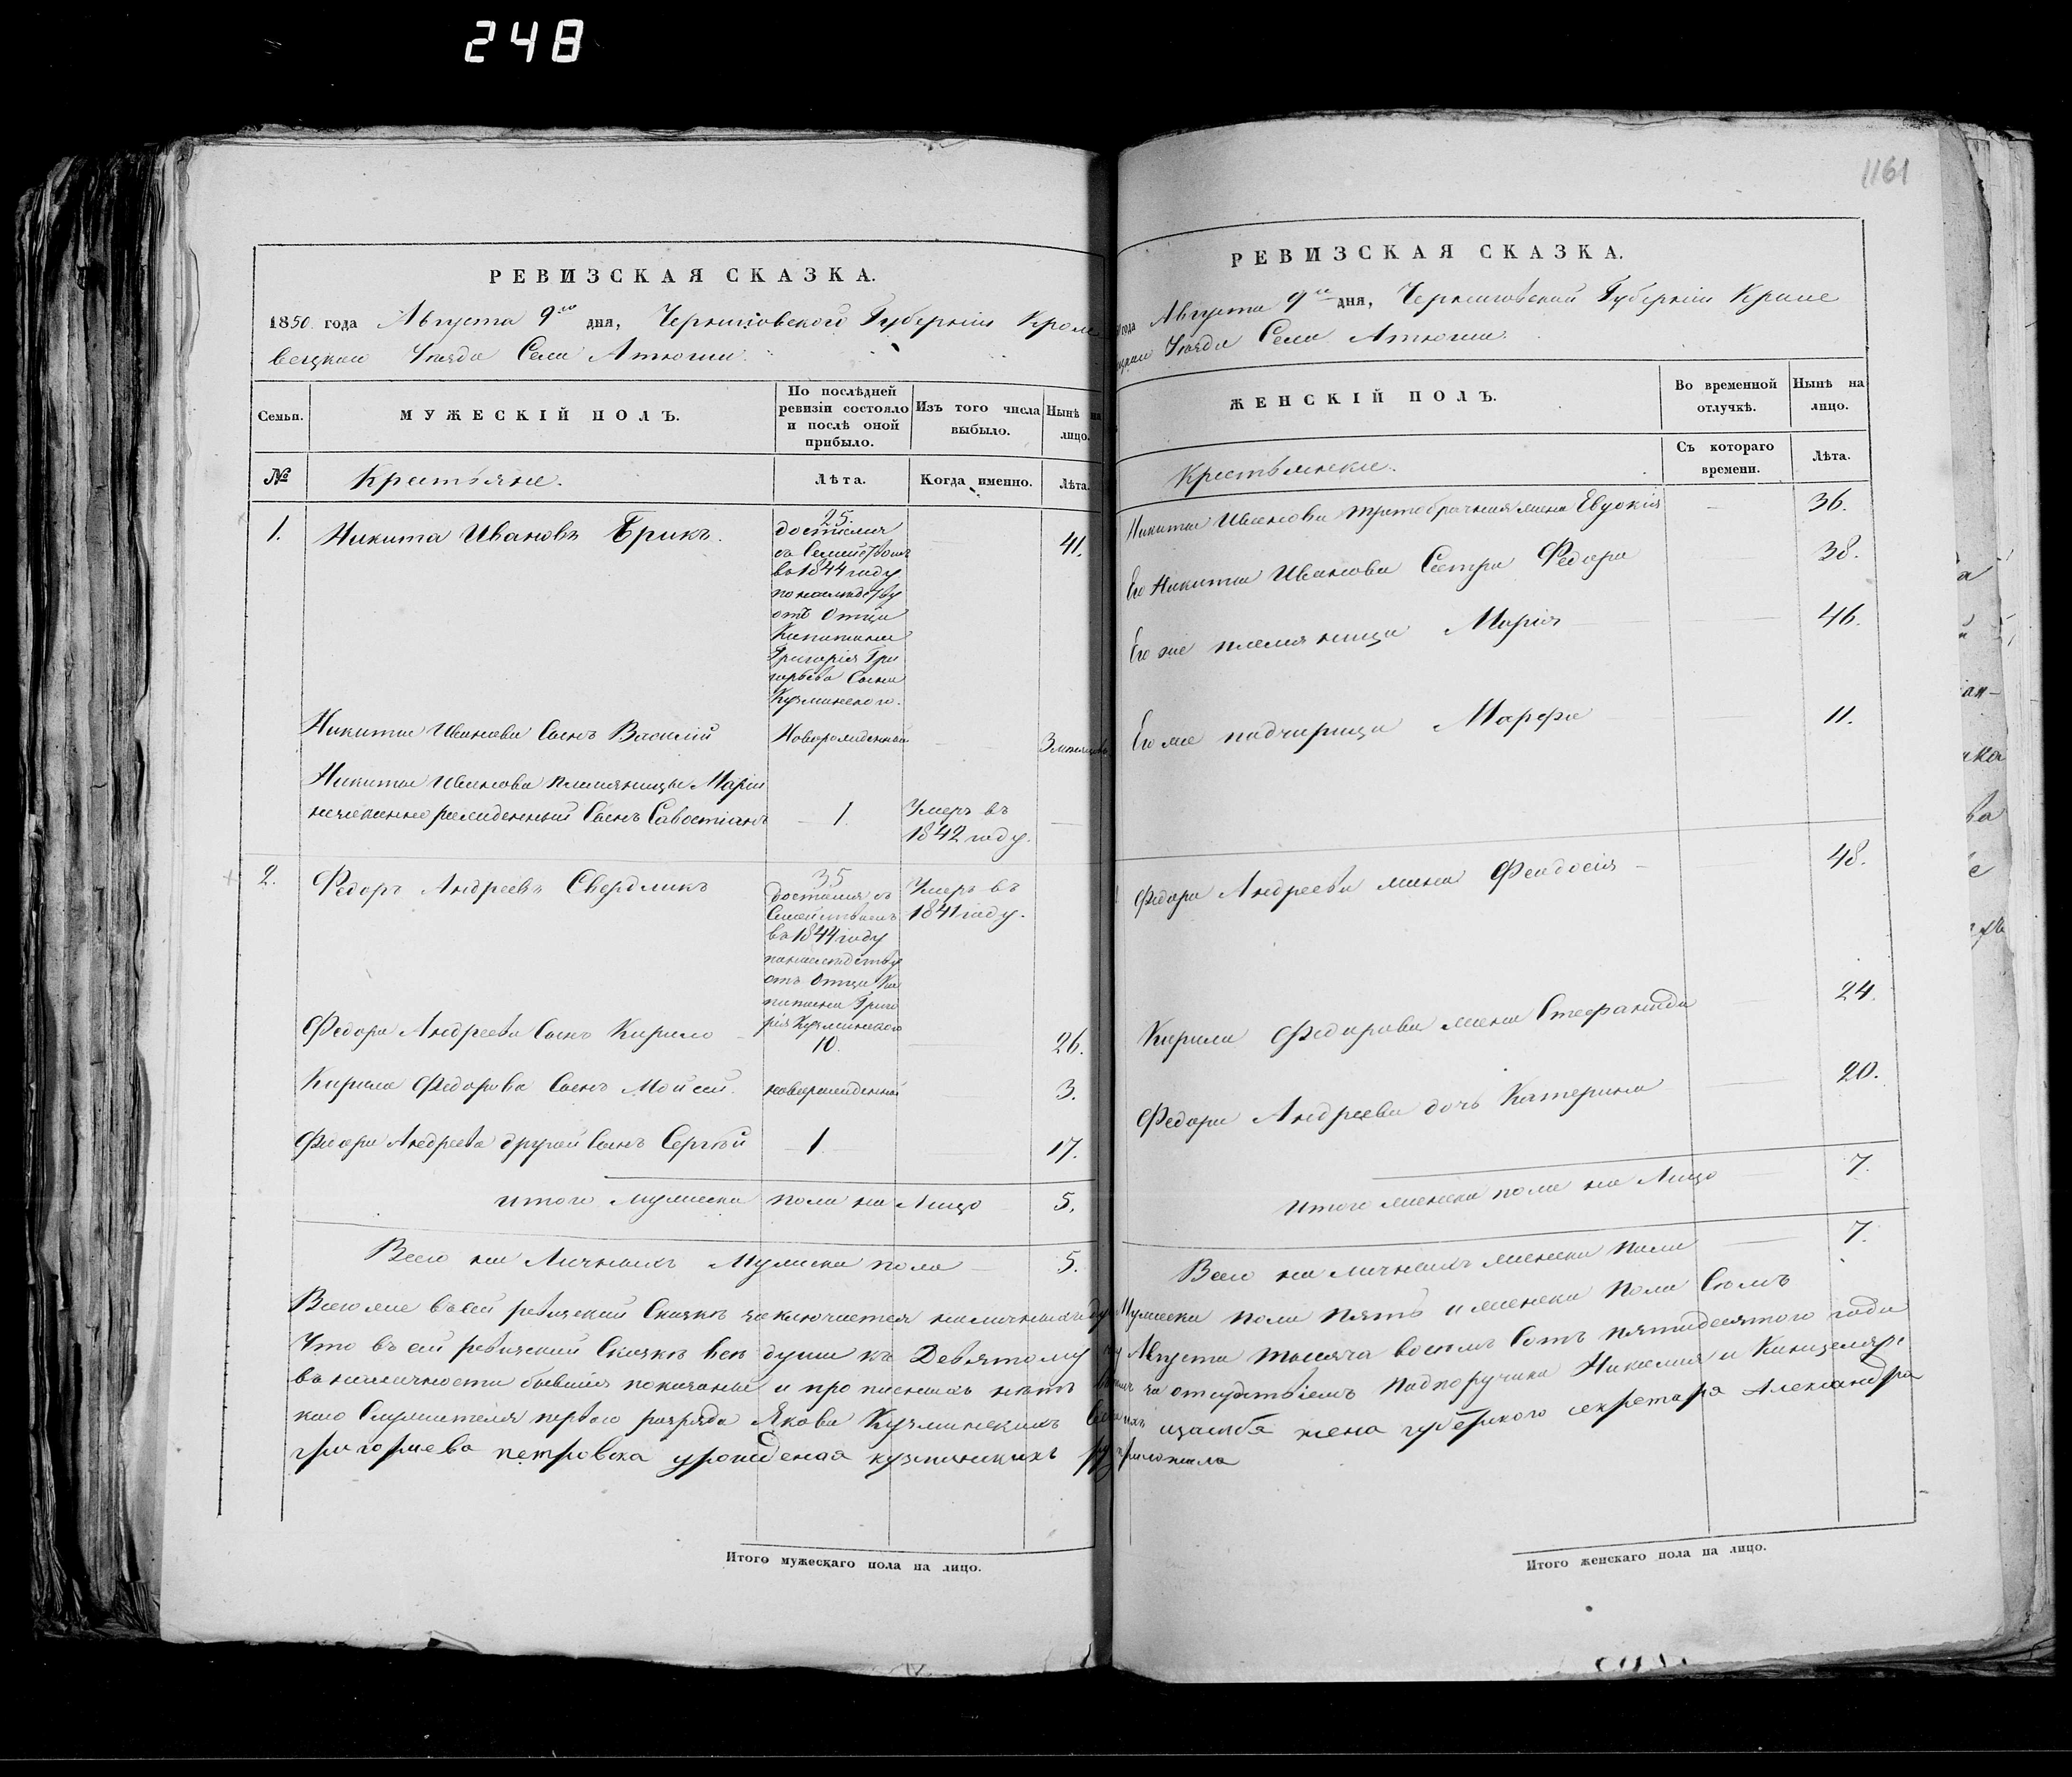 248
1161
РЕВИЗСКАЯ СКАЗКА.
1850 года Августа 9го дня, Черниговской Губерніи Кроле
вецкаго Уѣзда Села Атюши.
Семьи.
МУЖЕСКІЙ ПОЛЪ.
По послѣдней
ревизіи состояло
и послѣ оной
прибыло.
Изъ того числа
выбыло.
Нынѣ на
лицо.
№
Крестьяне.
Лѣта.
Когда именно.
Лѣта.
1.
Никита Ивановъ Брикъ.
25.
достался
съ Семействомъ
въ 1844 году
по наследству
отъ Отца
Капитана
Григорія Гри
горьева Сына
Кузминского.
41.
Никиты Иванова Сынъ Василій
Новорожденный
3 месяцовъ
Никиты Иванова племяницы Маріи
незаконно рожденный Сынъ Савостіанъ
1.
Умеръ въ
1842 году.
2.
Федоръ Андреевъ Свердликъ
35
достался съ
Семействомъ
въ 1844 году
по наследству
отъ Отца Ка
питана Григо
рія Кузминского
Умеръ въ
1841 году.
Федора Андреева Сынъ Кирило
10.
26.
Кирила Федорова Сынъ Мойсей.
новорожденный
3.
Федора Андреева другой Сынъ Сергѣй
1.
17.
Итого мужеска пола на Лицо
5.
Всего на Личныхъ Мужеска пола
5.
Всего же въ сей ревизской Сказкѣ заключается наличныхъ душъ
Что въ сей ревизской Сказкѣ все души къ Девятому
въ наличности бывшія показаны и прописныхъ нѣтъ
кого Служителя первого разряда Якова Кузминскихъ
григориева петровска урожденая кузминскихъ
Итого мужескаго пола на лицо.
РЕВИЗСКАЯ СКАЗКА.
года Августа 9го дня, Черниговской Губерніи Кроле
Уѣзда Села Атюши.
ЖЕНСКІЙ ПОЛЪ.
Во временной
отлучкѣ.
Нынѣ на
лицо.
Крестьянки.
Съ котораго
времени.
Лѣта.
Никиты Иванова третобрачная жена Евдокія
36.
Его Никиты Иванова Сестра Федора
38.
Его же племяница Марія
46.
Его же падчирица Марфа
11.
Федора Андреева жена Феодосія
48.
Кирила Федорова жена Стефанида
24.
Федора Андреева дочь Катерина
20.
Итого женска пола на Лицо
7.
Всего на личныхъ женска пола
7.
Мужеска пола пять и женска пола Семъ
Августа тысяча восемъ Сотъ пятидесятого года
за отсудствіемъ Подпоручика Николая и Канцеляр
жена губерского секретаря Александра
приложила
Итого женскаго пола на лицо.